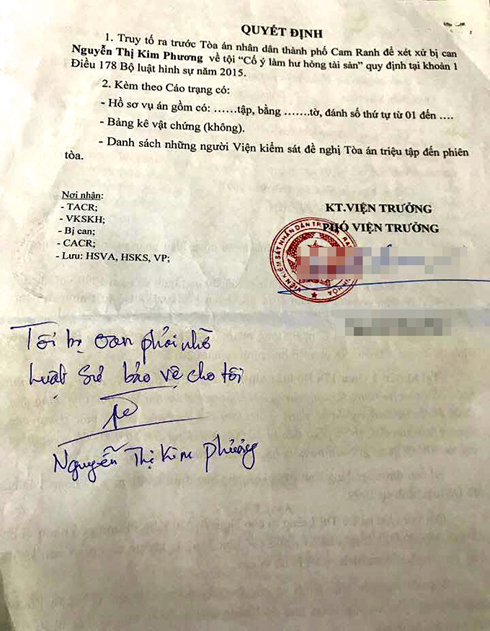 QUYẾT ĐỊNH
1. Truy tố ra trước Tòa án nhân dân thành phố Cam Ranh để xét xử bị can
Nguyễn Thị Kim Phương về tội “Cố ý làm hư hỏng tài sản” quy định tại khoản 1
Điều 178 Bộ luật hình sự năm 2015.
2. Kèm theo Cáo trạng có:
- Hồ sơ vụ án gồm có: ……tập, bằng …..tờ, đánh số thứ tự từ 01 đến ….
- Bảng kê vật chứng (không).
- Danh sách những người Viện kiểm sát đề nghị Tòa án triệu tập đến phiên
tòa.
Nơi nhận:
- TACR;
- VKSKH;
- Bị can;
- CACR;
- Lưu: HSVA, HSKS, VP;
KT.VIỆN TRƯỞNG
PHÓ VIỆN TRƯỞNG
VIỆN KIỂM SÁT NHÂN DÂN
Tôi bị oan phải nhờ
Luật Sư bảo vệ cho tôi
Nguyễn Thị Kim Phương